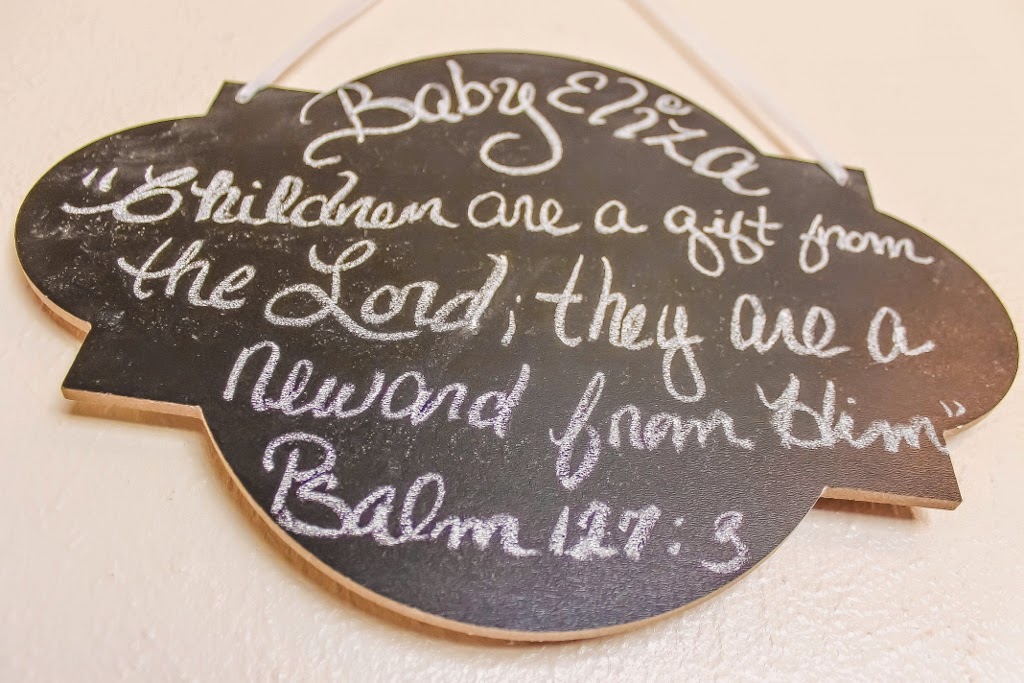 Baby Eliza
"Children are a gift from
the Lord; they are a
reward from Him"
Psalm 127:3